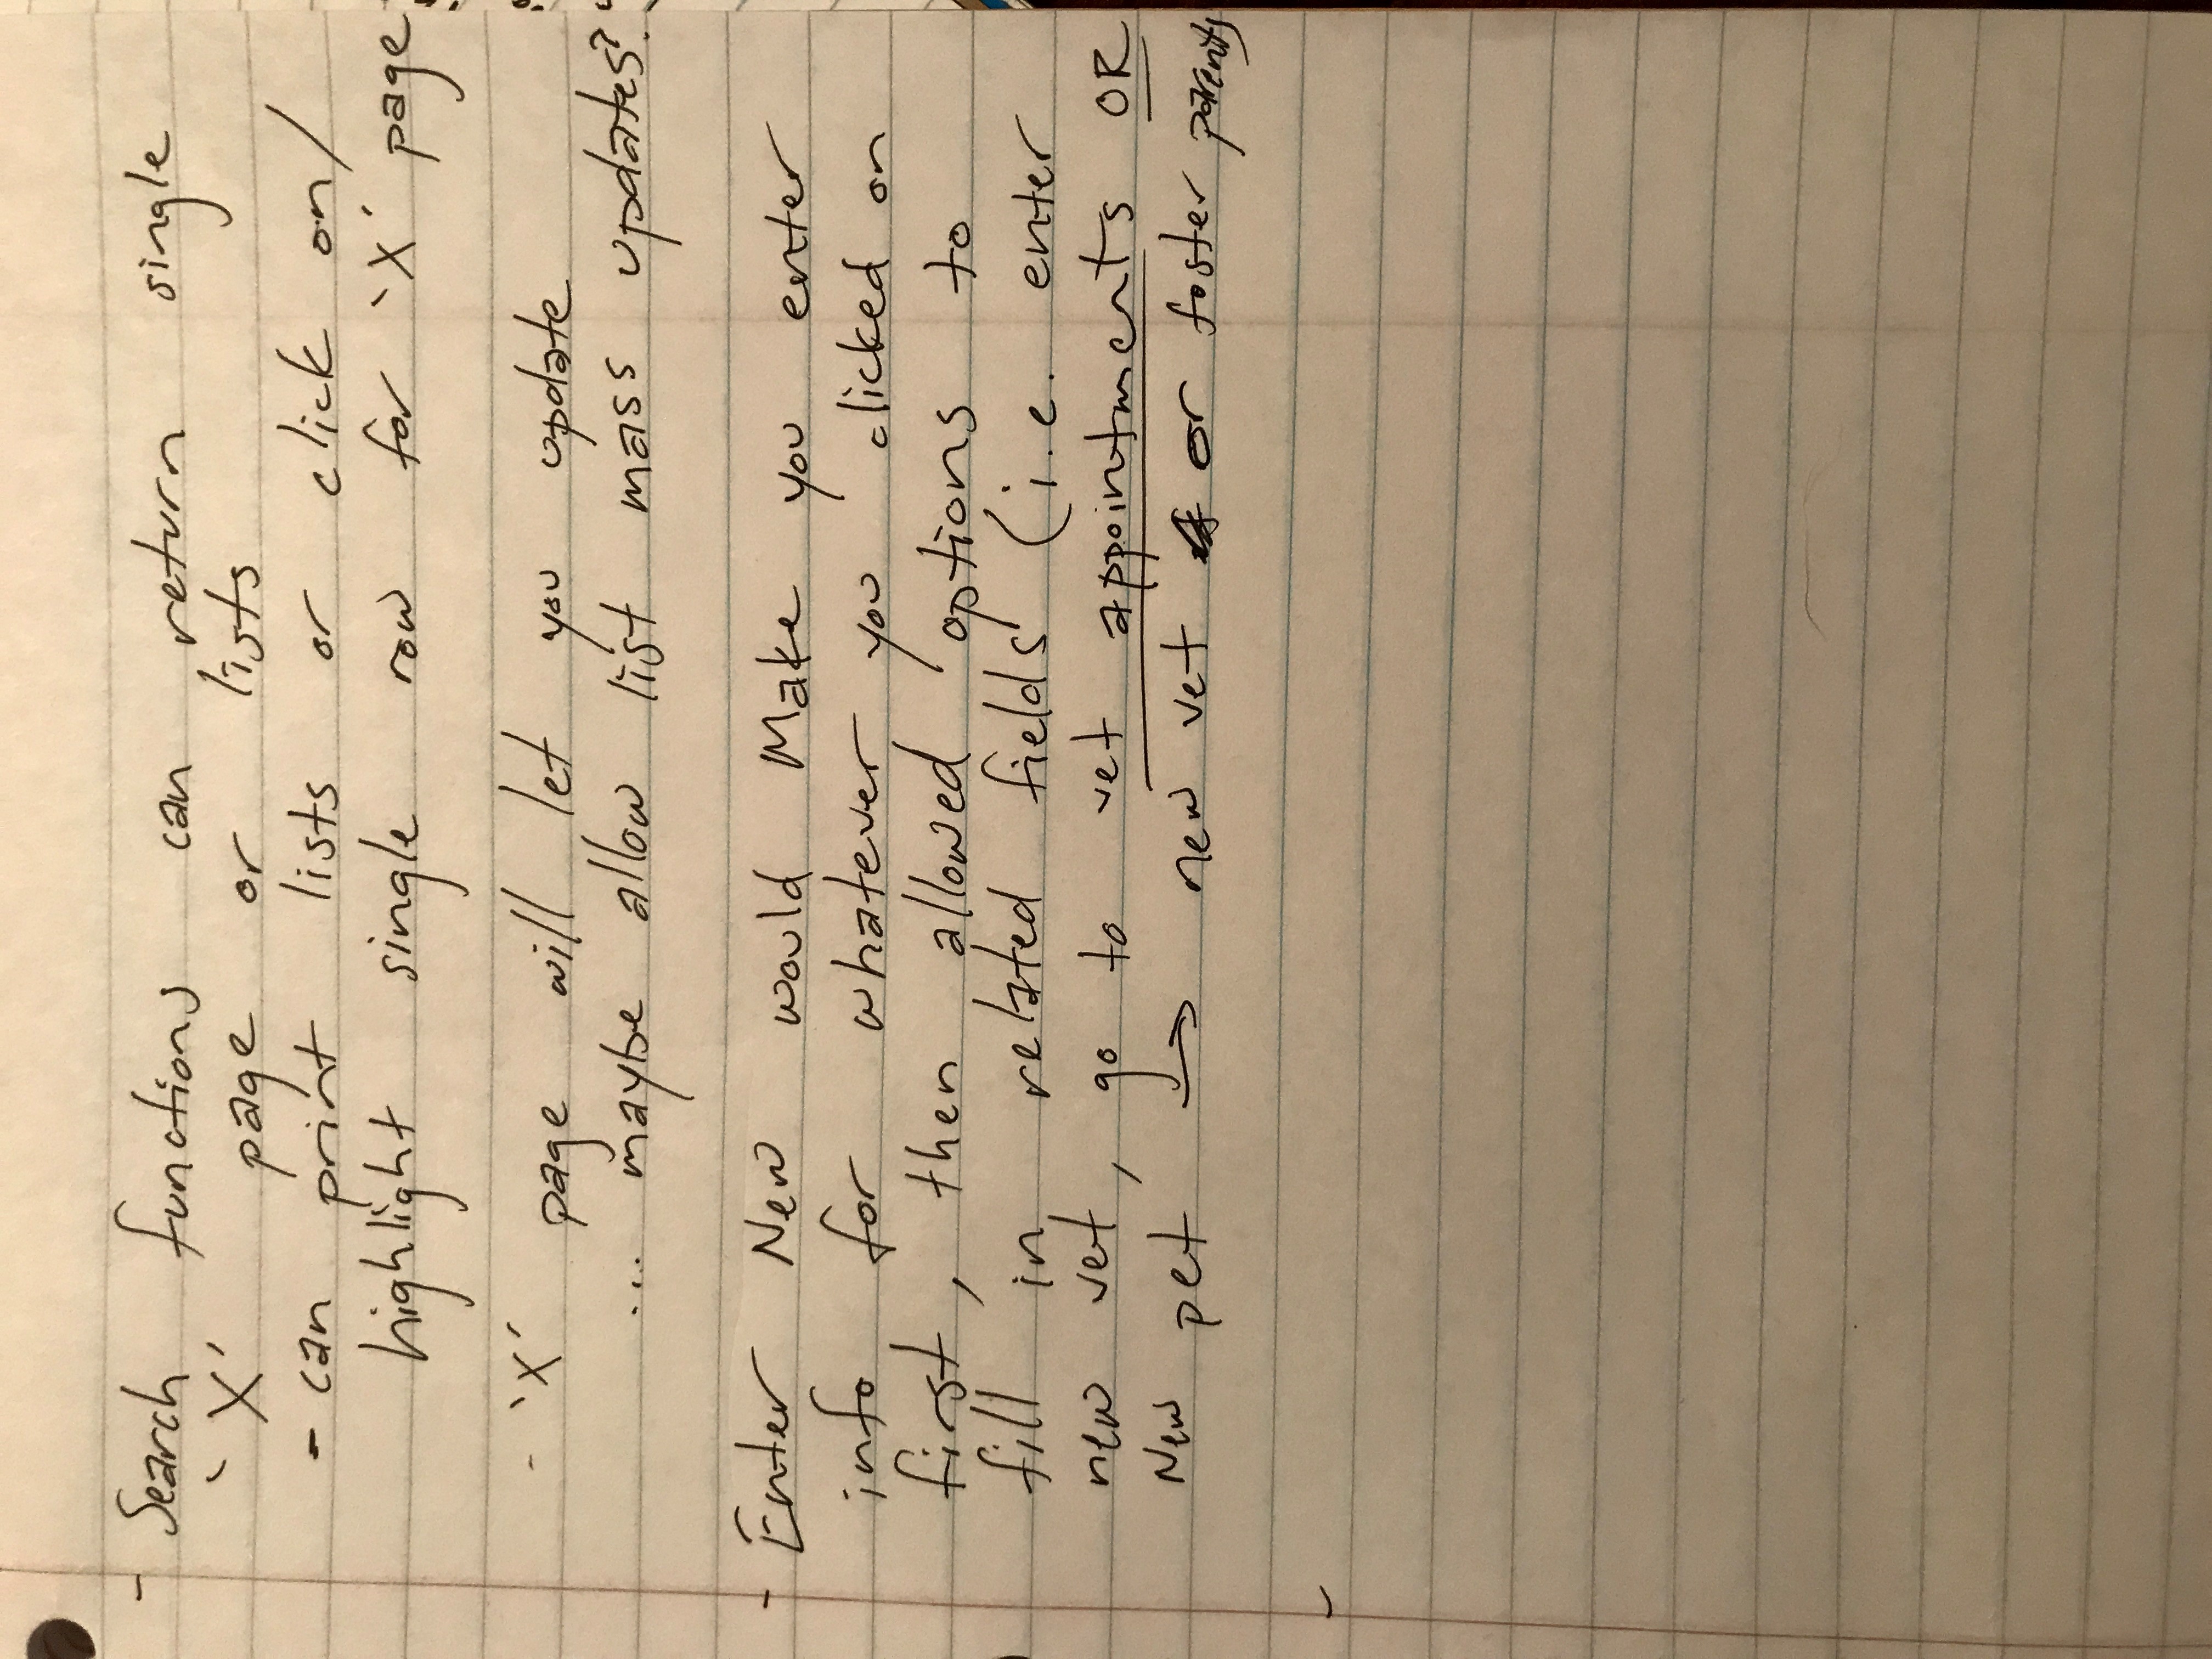 - Search functions can return single
'X' page or lists
- can print lists or click on/
highlight single row for 'X' page
- 'X' page will let you update
... maybe allow list mass updates?
- Enter New would Make you enter
info for whatever you clicked on
first, then allowed options to
fill in related fields (i.e. enter
new vet, go to vet appointments OR
New pet → new vet or foster parents
-